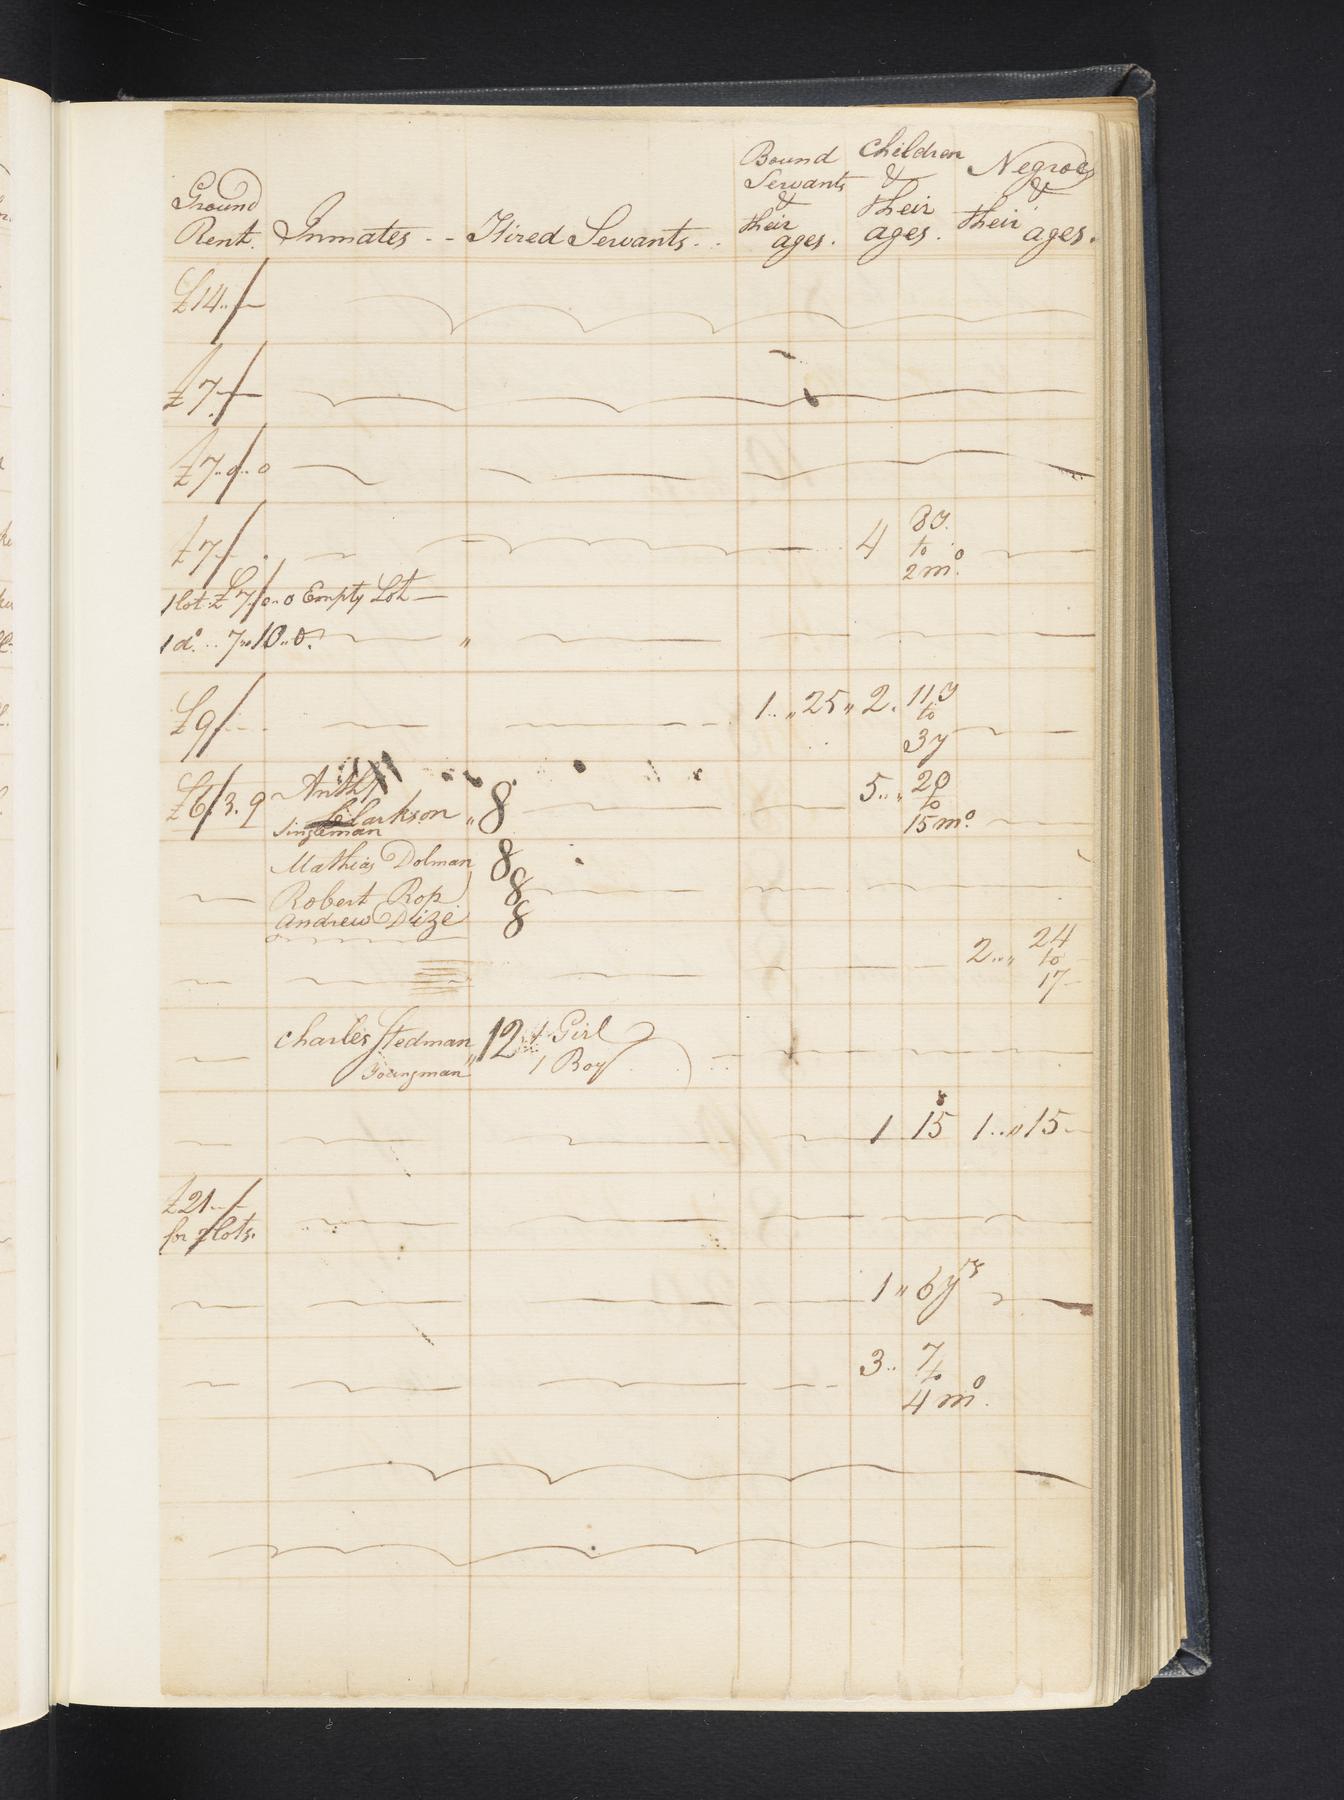 Ground Rent. Inmates - - Hired Servants . . Bound Servants & their ages. Children & their ages. Negroes & their ages.
£14../—
£7../—
£7..0..0
£7/— 4 8 y. to 2 mo.
1 lot £7..0..0 Empty Lot —
1 do. .. 7..10..0.
£9/ 1.. „25„ 2. 11 y to 3y
£6/.3.9 Anthy Clarkson „8 5.. „ 20 to 15 mo.
Singleman
Mathias Dolman 8
Robert Rop 8
Andrew Dize 8
2..„ 24 to 17
Charles Stedman „12 4 Girl
Youngman 1 Boy
1 15 1..„15—
£21../—
for 2 lots.
1 „ 6 yrs
3.. 7 to 4 mo.